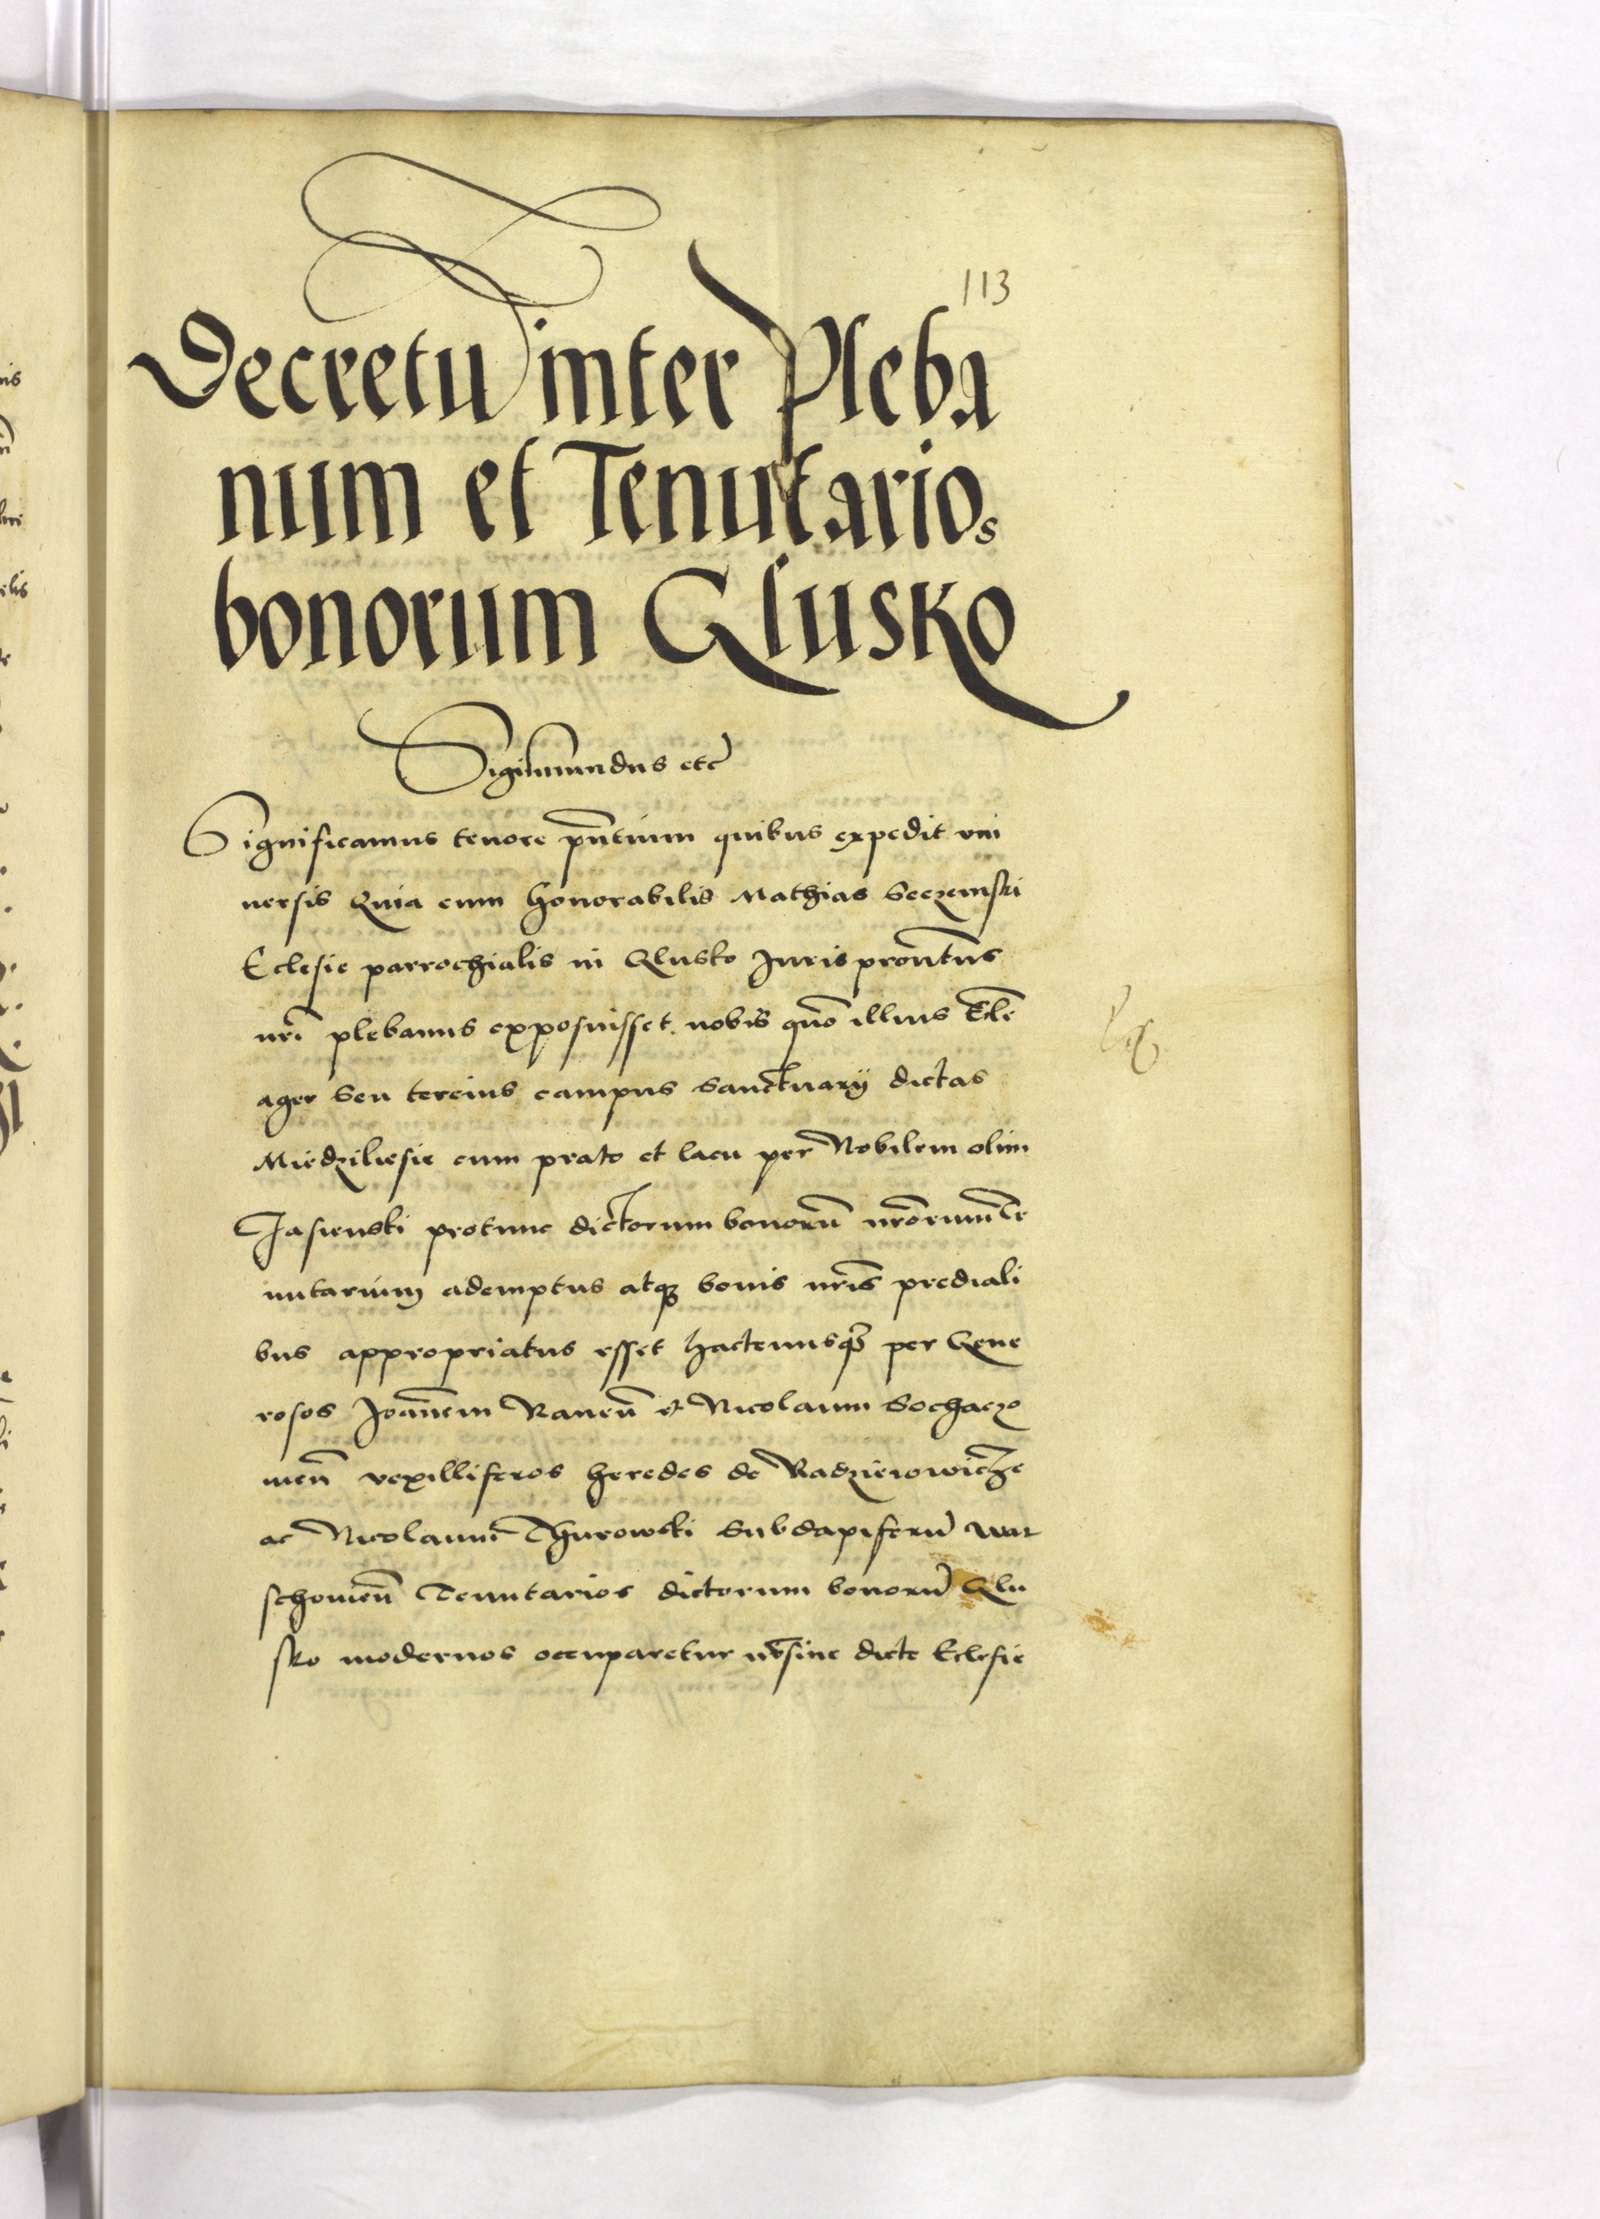 113
Decretu inter Pleba
num et Tenutarios
bonorum Glusko
Sigismundus etc
Significamus tenore pn̄tium quibus expedit vni
uersis Quia cum honorabilis Mathias Seczemski
Eclesie parrochialis in Glusko Juris pron̄tus
nr̄i plebanus exposuisset nobis quō illius Ecl̄e
ager seu tercius campus Sanctuarij dictas
Miedziliesie cum prato et lacu per Nobilem olim
Jasienski protunc dictorum bonorū nr̄orum te
nutarium ademptus atq̃ bonis nr̄is prediali
bus appropriatus esset hactenusq̃ per Gene
rosos Joannem Rauen̄ et Nicolaum Sochaczo
uien̄ vexilliferos heredes de Radzieiowicze
ac Nicolaum Thurowski Subdapiferū war
schouien̄ Tenutarios dictorum bonorū Glu
sko modernos occuparetur dicte Eclesie